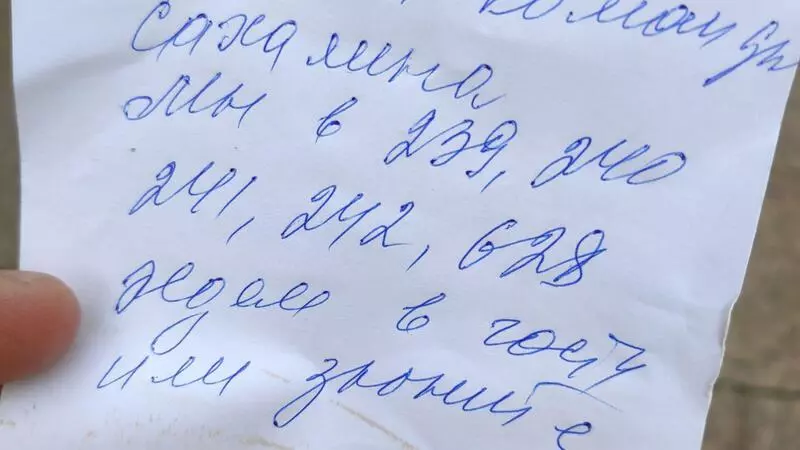 команды
Сахалина
Мы в 239, 240
241, 242, 628
ждем в гости
или звоните